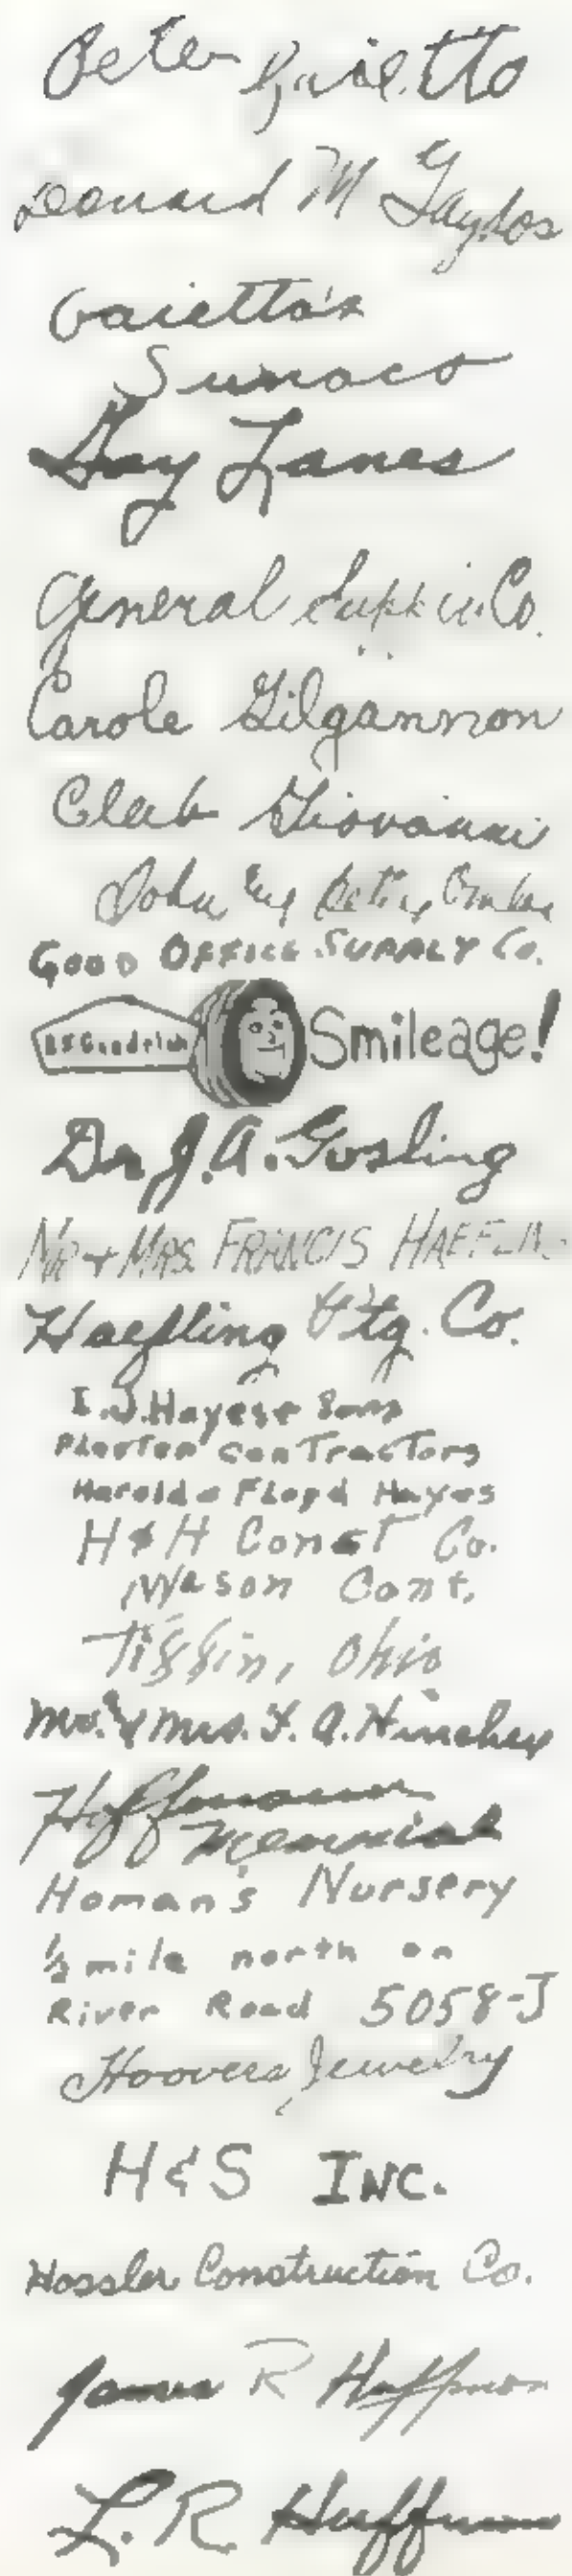 Peter Gaietto
Leonard M Gaydos
Gaietto's
Sunoco
Gay Lanes
General Co.
Carole Gilgannon
Club Giovanni
John
GOOD OFFICE SUPPLY Co.
B.F.Goodrich Smileage!
Dr J. A. Gosling
MR + MRS. FRANCIS HAEFLING
Haefling Co.
I.J. Hayes & Sons
Plaster contractors
Harold & Floyd Hayes
H & H Const Co.
Mason Cont.
Tiffin, Ohio
Mr. & Mrs. F. A. Hinchey
Hoffmann
Memorial
Homan's Nursery
½ mile north on
River Road 5058-J
Hoovers Jewelry
H & S INC.
Hossler Construction Co.
James R Huffman
L. R Huffman